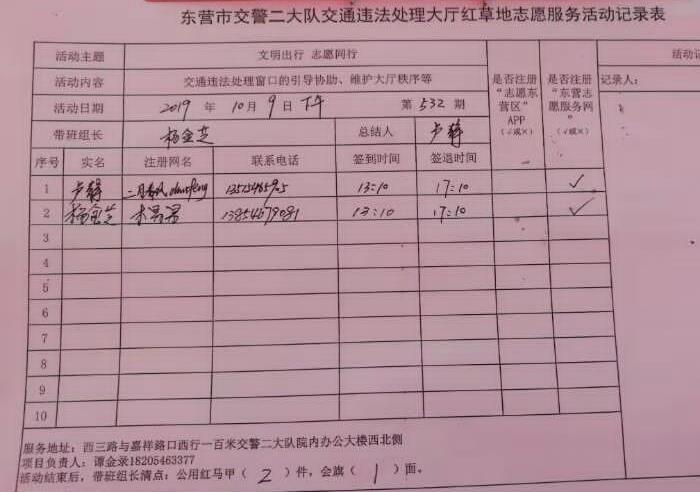 东营市交警二大队交通违法处理大厅红草地志愿服务活动记录表
活动主题 文明出行 志愿同行 是否注册“志愿东营区”APP（√或×） 是否注册“东营志愿服务网”（√或×） 活动记
活动内容 交通违法处理窗口的引导协助、维护大厅秩序等 记录人：
活动日期 2019 年 10 月 9 日 下午 第 532 期
带班组长 杨金芝 总结人 卢静
序号 实名 注册网名 联系电话 签到时间 签退时间
1 卢静 二月春风 13:10 17:10 ✓
2 杨金芝 13854679081 13:10 17:10 ✓
3
4
5
6
7
8
9
10
服务地址：西三路与嘉祥路口西行一百米交警二大队院内办公大楼西北侧
项目负责人：谭金录18205463377
活动结束后，带班组长清点：公用红马甲（ 2 ）件，会旗（ 1 ）面。